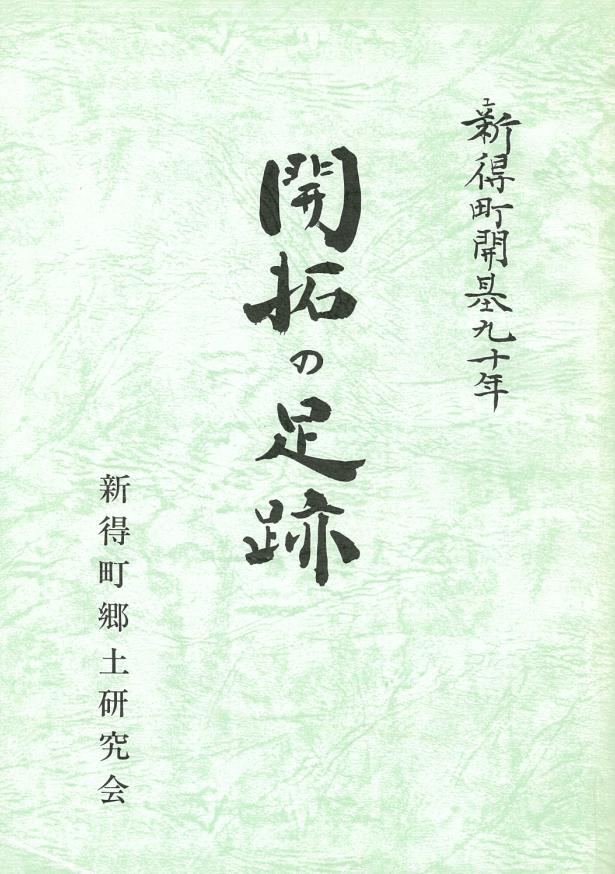 新得町開基九十年
開拓の足跡
新得町郷土研究会